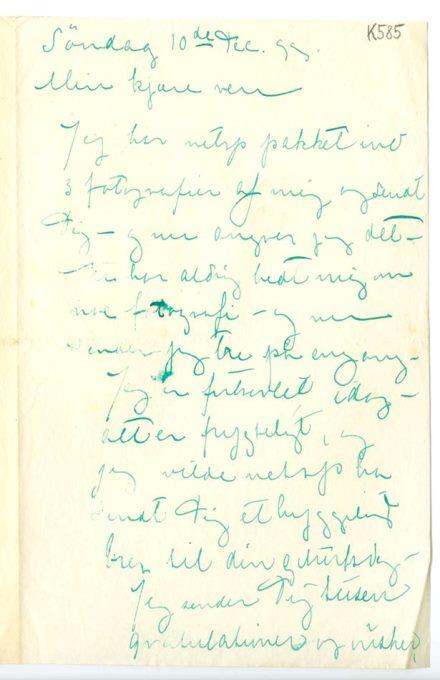 K585
Söndag 10de Dec. 99.
Min kjære ven
Jeg har netop pakket ind
3 fotografier af mig og sendt
Dig – og nu angrer jeg det –
– Du har aldrig bedt mig om
noe fotografi – og nu
sender jeg tre på engang –
Jeg er fortvivlet idag –
alt er frygteligt, og
jeg vilde netop ha
sendt Dig et hyggeligt
brev til din geburtsdag –
Jeg sender Dig tusen
gratulationer og önsker,